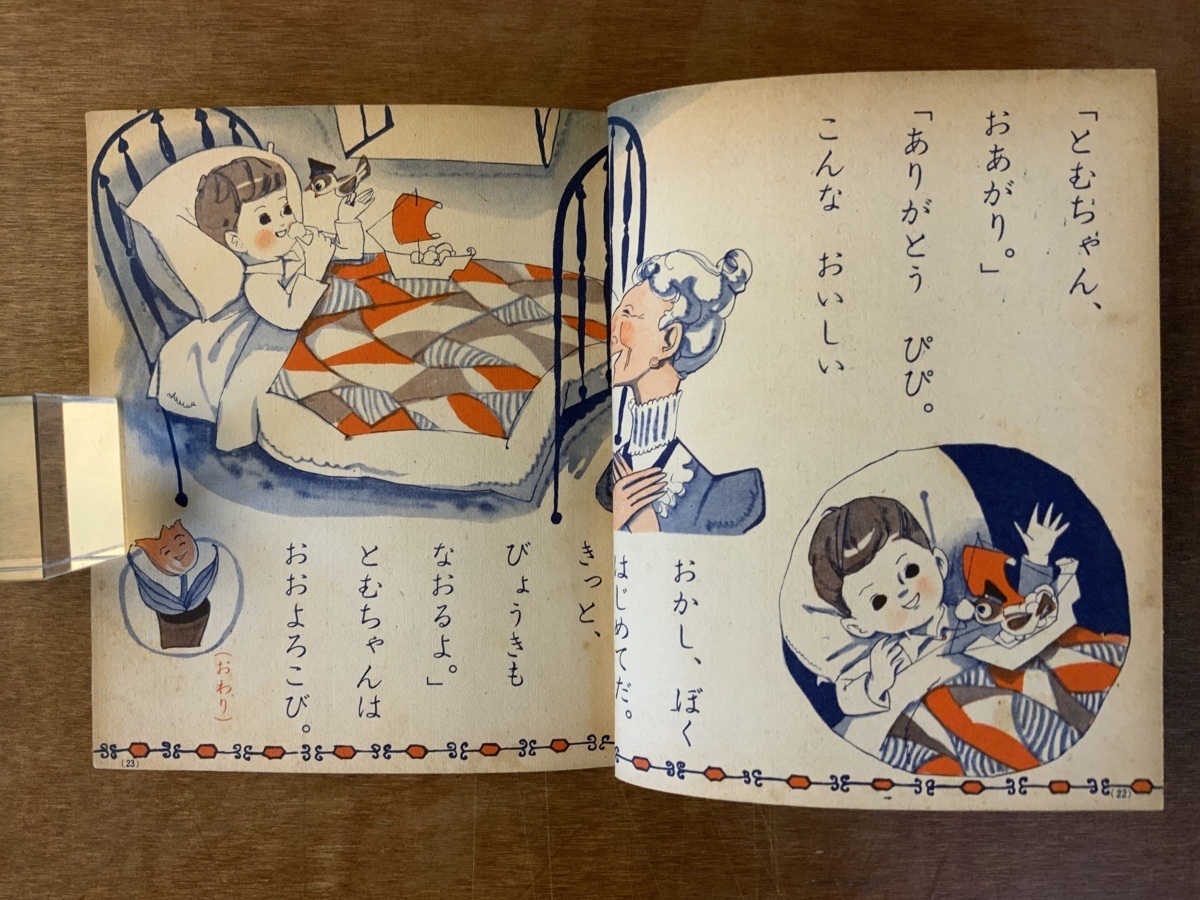 「とむちゃん、
おあがり。」
「ありがとう　ぴぴ。
こんな　おいしい
おかし、ぼく
はじめてだ。
きっと、
びょうきも
なおるよ。」
とむちゃんは
おおよろこび。
（おわり）
(22)
(23)